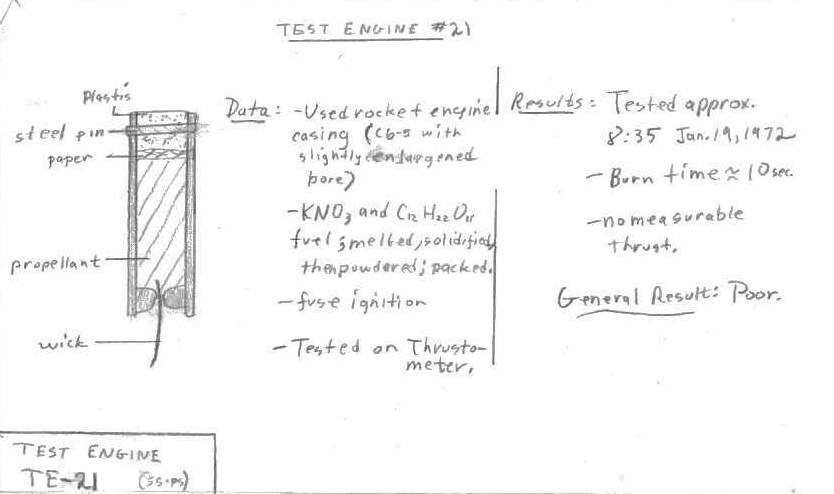 TEST ENGINE #21
plastic
steel pin
paper
propellant
wick
Data: -Used rocket engine
casing (C6-5 with
slightly enlargened
bore)
-KNO3 and C12H22O11
fuel; melted, solidified,
then powdered; packed.
-fuse ignition
-Tested on Thrusto-
meter.
Results: Tested approx.
8:35 Jan. 19, 1972
-Burn time ≈ 10 sec.
-no measurable
thrust.
General Result: Poor.
TEST ENGINE
TE-21 (SS-PS)